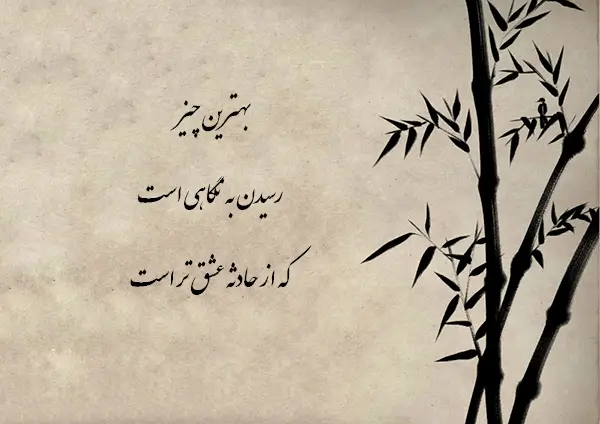 بهترین چیز
رسیدن به نگاهی است
که از حادثه عشق تر است